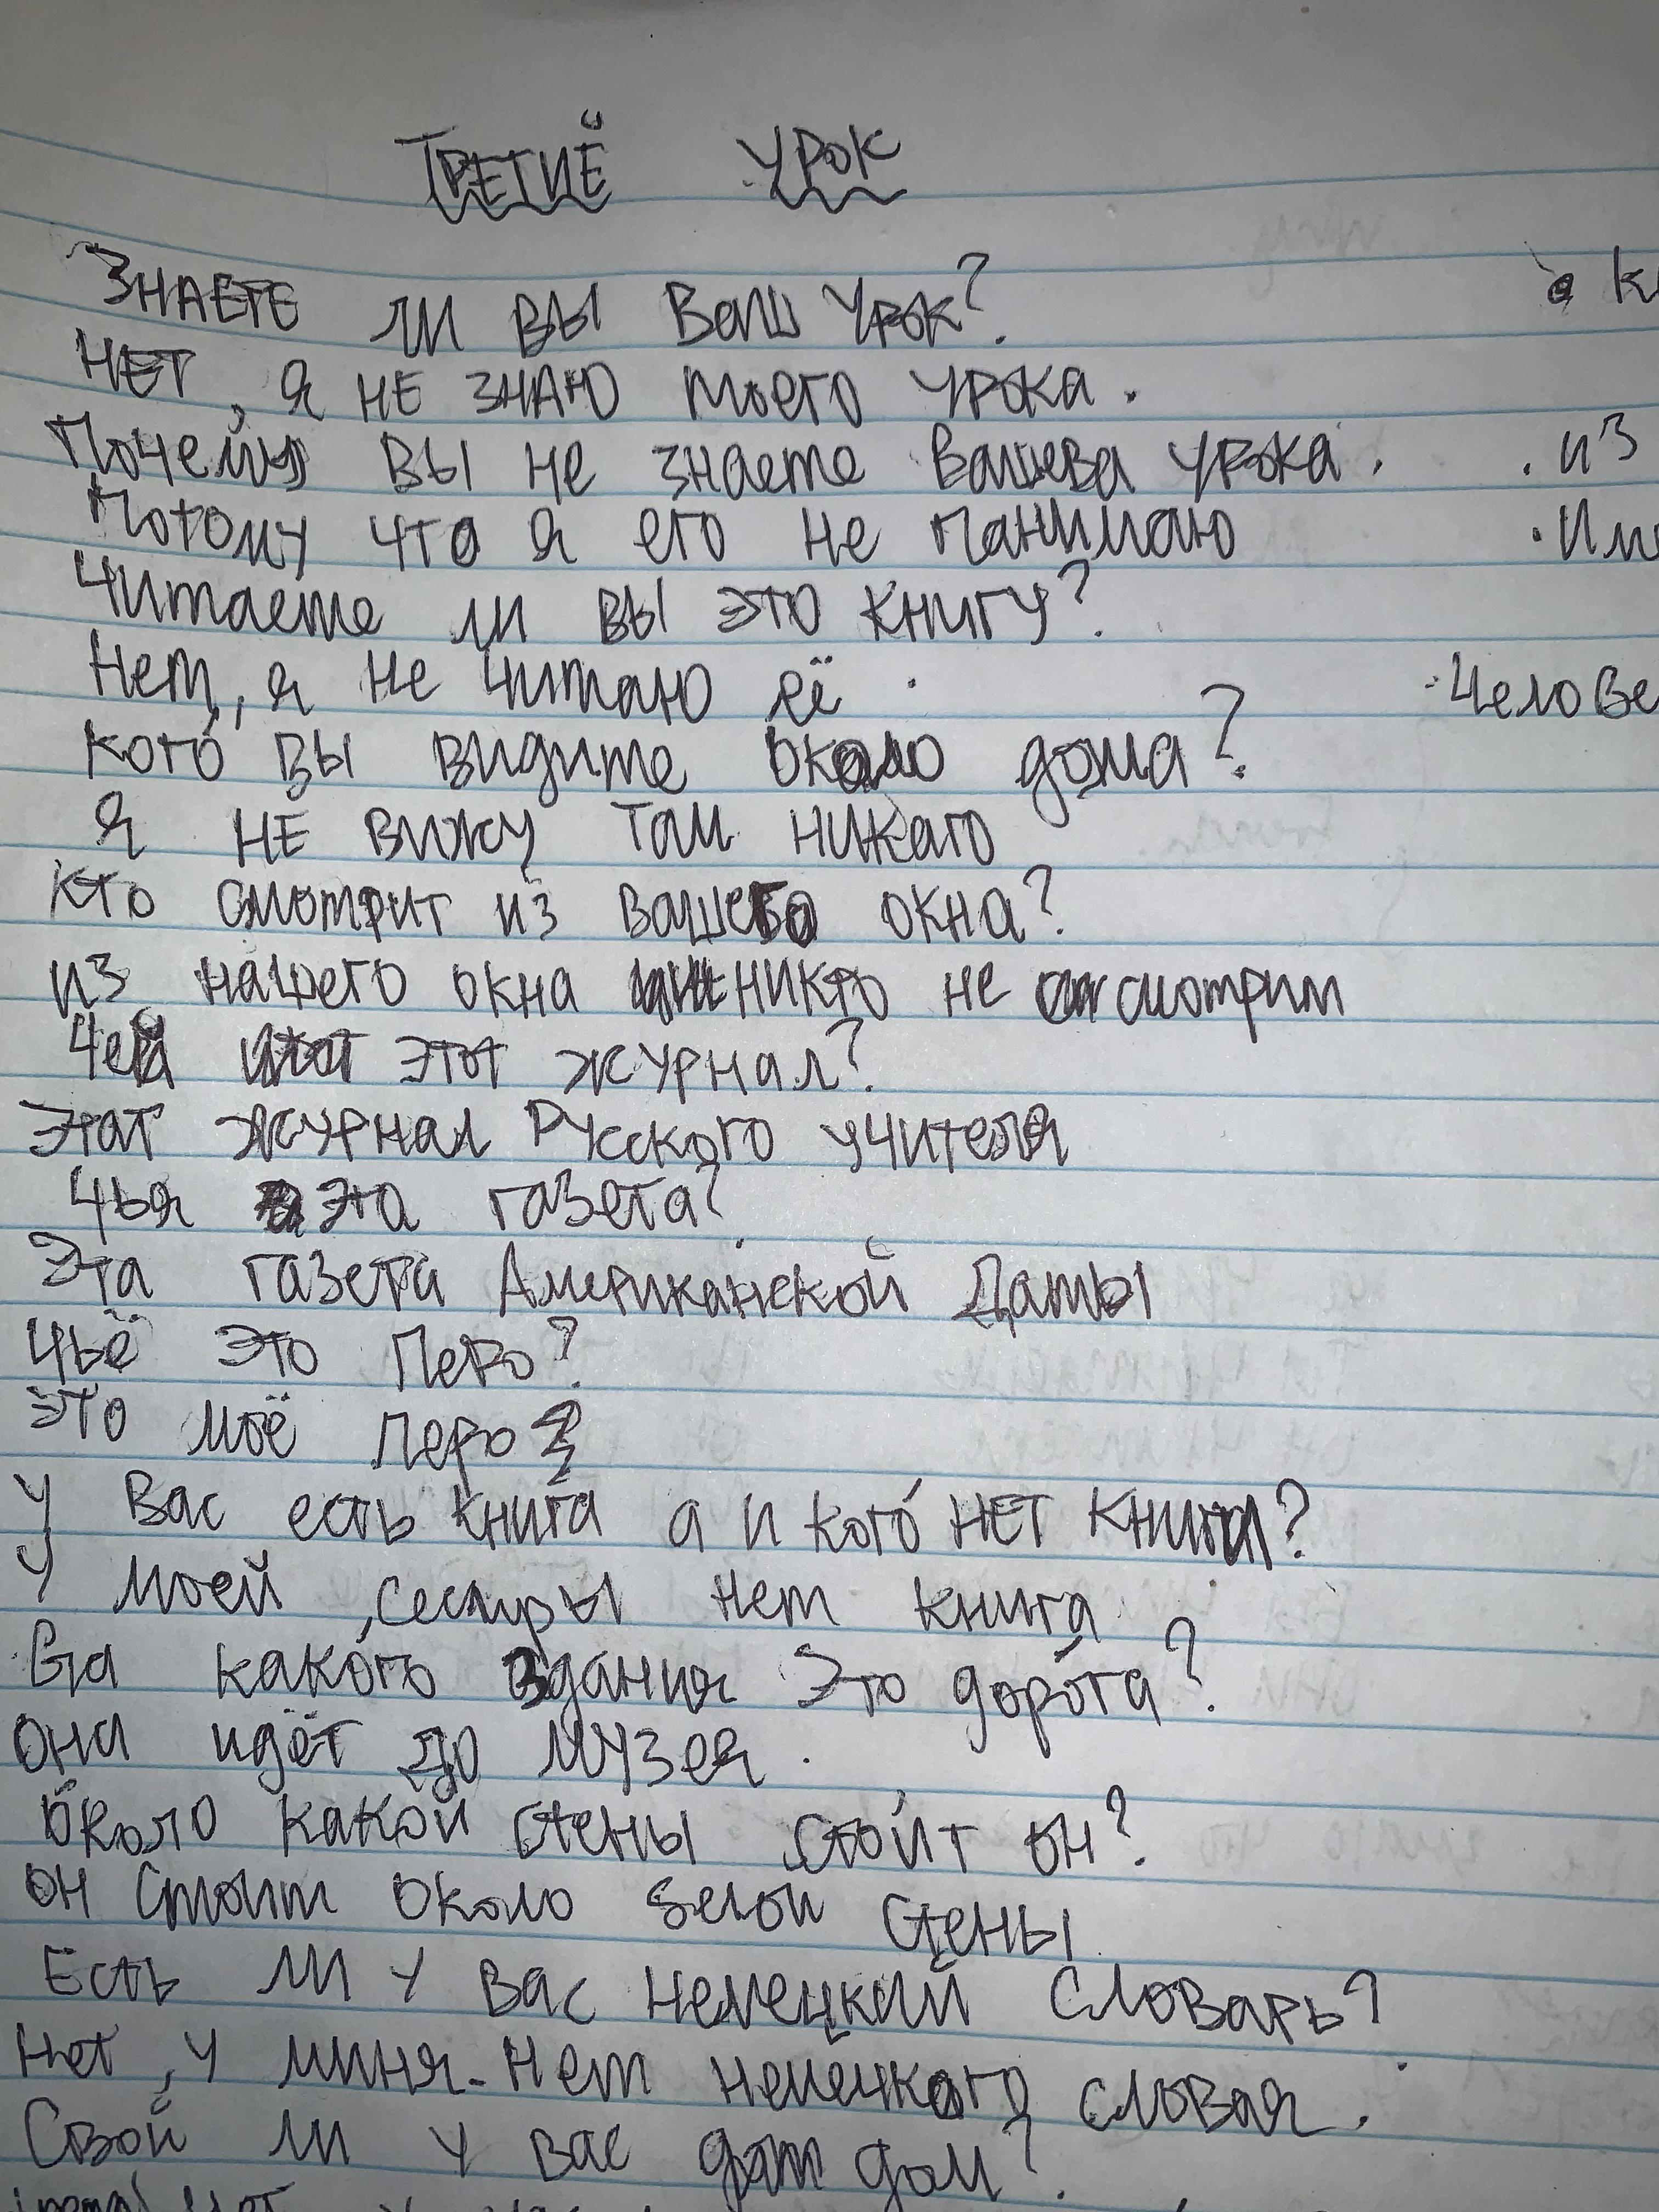 ТРЕТИЙ УРОК
ЗНАЕТЕ ли вы Ваш Урок?
НЕТ, я НЕ ЗНАЮ моего урока.
Почему вы не знаете вашева урока.
Потому что я его не панимаю
Читаете ли вы это книгу?
Нет, я не читаю её.
кого́ вы видите около дома?
я НЕ вижу там никаго
кто смотрит из вашего окна?
из нашего окна никто не смотрит
Чей этот журнал?
Этат журнал Русского учителя
Чья эта газета?
Эта газета Американской Даты
Чьё это Перо?
это моё перо
У вас есть книга а и кого́ НЕТ книги?
У моей сестры нет книга
какого здания Это доро́га?
она идёт до музея.
около какой стены стои́т он?
он стоит около белой стены
Есть ли у вас немецкий словарь?
Нет, у миня нет немецкого словая.
Свой ли у вас дом?
из
Челове